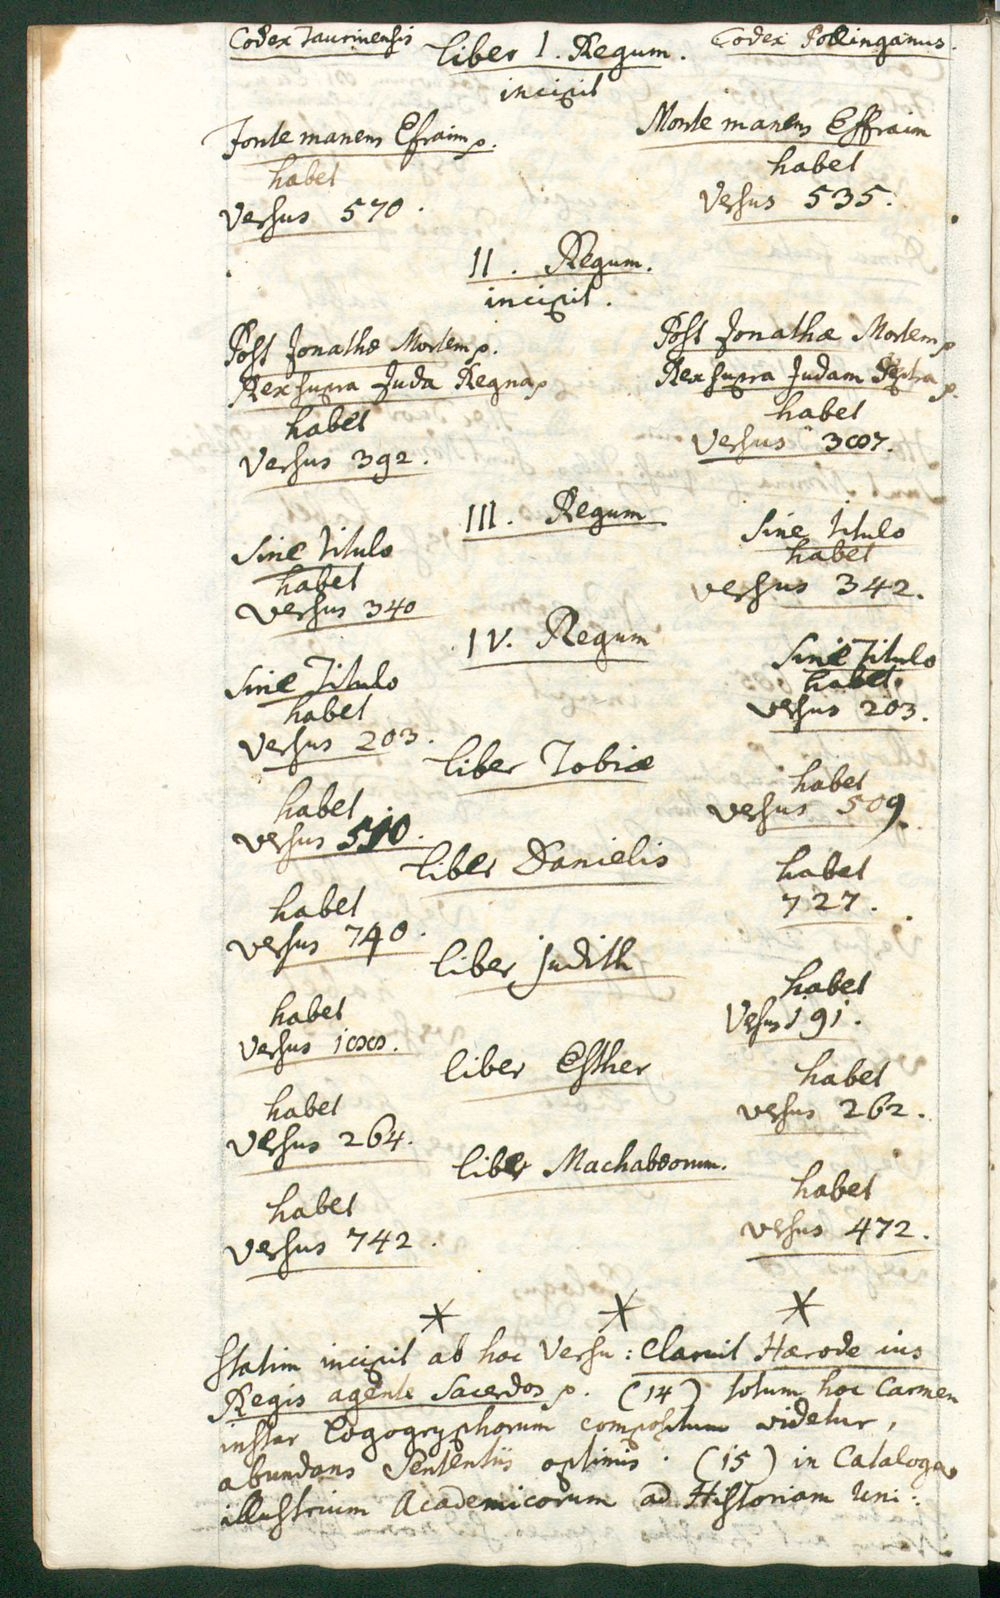 Codex Taurinensis
Liber I. Regum.
Codex Pollinganus.
incipit
Fonte manens Efraim p.
habet
Versus 570.
Monte manens Effraim
habet
Versus 535.
II. Regum.
incipit.
Post Jonathæ Mortem p.
Rex supra Juda Regna p
habet
Versus 392.
Post Jonathæ Mortem p
Rex supra Judam p.
habet
Versus 387.
III. Regum.
Sine Titulo
habet
Versus 340
Sine titulo
habet
versus 342.
IV. Regum
Sine Titulo
habet
versus 203.
Sine Titulo
habet.
versus 203.
Liber Tobiæ
habet
versus 510.
habet
versus 509.
Liber Danielis
habet
versus 740.
habet
727.
Liber Judith
habet
Versus
habet
Versus 191.
Liber Esther
habet
Versus 264.
habet
versus 262.
Liber Machabæorum.
habet
Versus 742.
habet
versus 472.
* * *
statim incipit ab hoc Versu: Claruit Hærode ius
Regis agente Sacerdos p. (14) totum hoc Carmen
instar Logogryphorum compositum videtur,
abundans Sententiis optimis. (15) in Catalogo
illustrium Academicorum ad Historiam Uni: